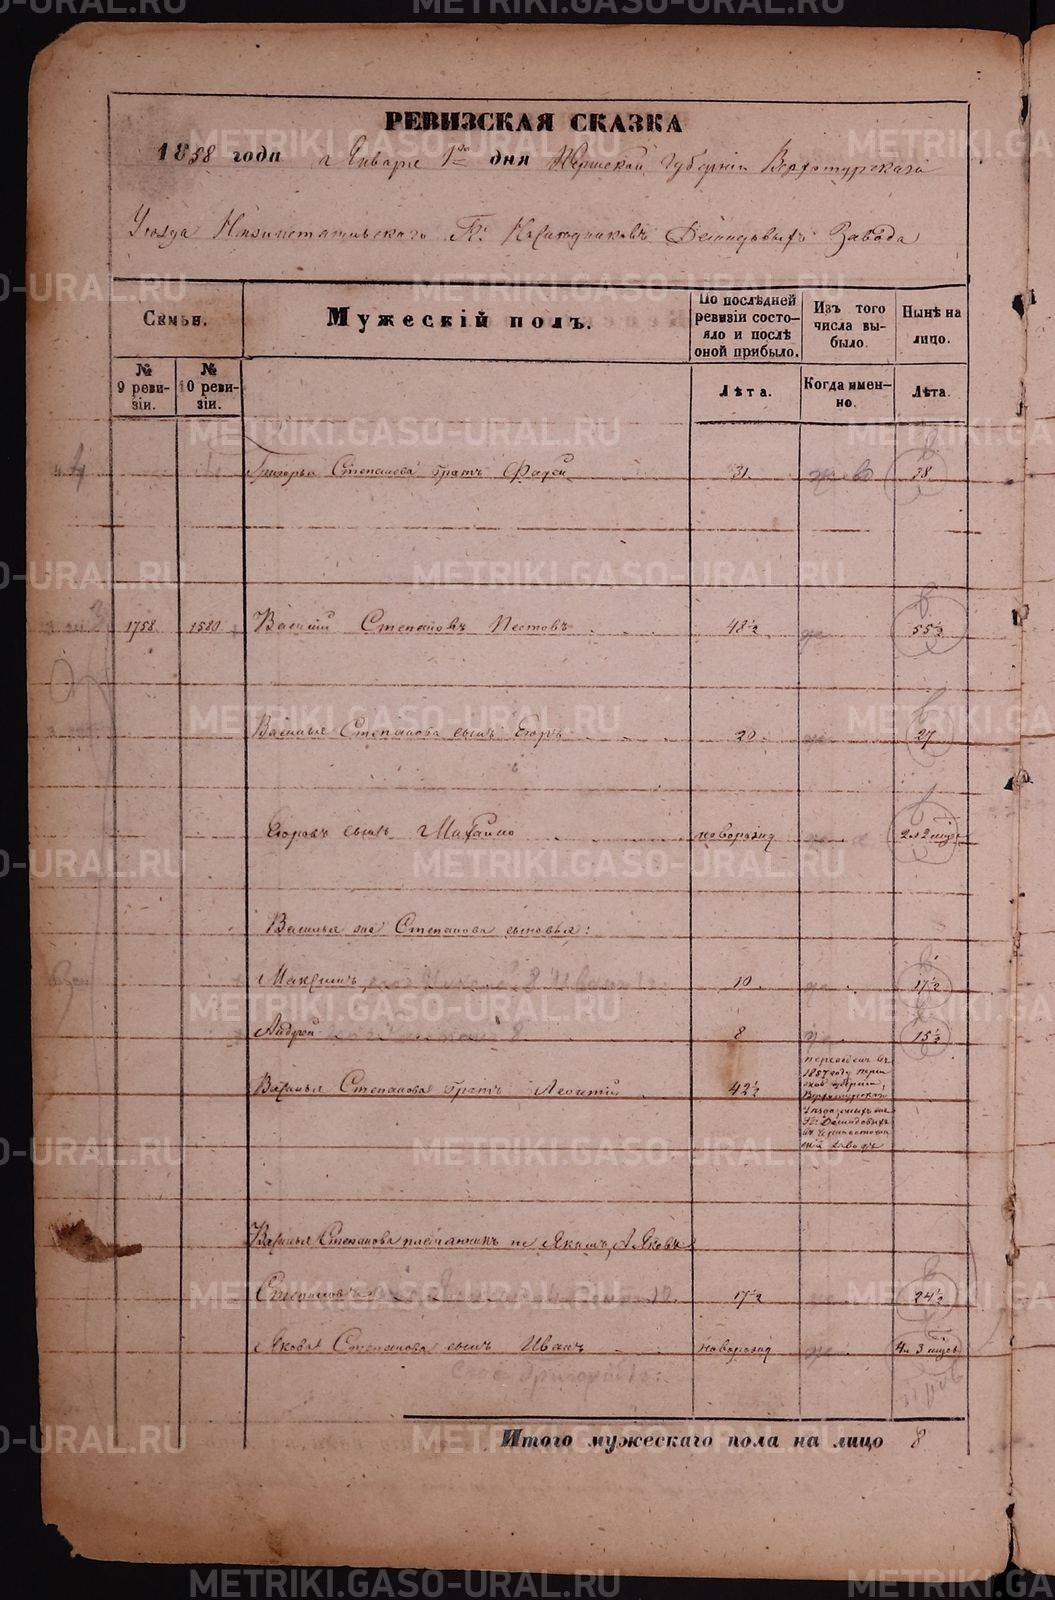 РЕВИЗСКАЯ СКАЗКА
1858 года Января 1го дня Пермской Губернии Верхотурскаго
Уезда Нижнетагильского Гг. Наследниковъ Демидовыхъ Завода
Семьи.
Мужескій полъ.
По послѣдней ревизіи состояло и послѣ оной прибыло.
Изъ того числа выбыло.
Нынѣ на лицо.
№ 9 ревизіи.
№ 10 ревизіи.
Лѣта.
Когда именно.
Лѣта.
Григорья Степанова братъ Фадей 31 38
1758 1580 Василий Степановъ Пестовъ 48½ 55½
Василья Степанова сынъ Егоръ 20 27
Егоровъ сынъ Михайло новорожд 2 л 2 мѣся
Василья же Степанова сыновья:
Максимъ 10 17½
Андрей 8 15½
Василья Степанова братъ Леонтий 42½ переведенъ въ
1857 году Перм
ской губернии,
Верхотурскаго
Гг. Демидовыхъ
въ Черноисточин
ский заводъ
Василья Степанова племянникъ Яковъ
Степановъ 17½ 24½
Якова Степанова сынъ Иванъ новорожд 4 л 3 мѣся
Итого мужескаго пола на лицо 8
METRIKI.GASO-URAL.RU